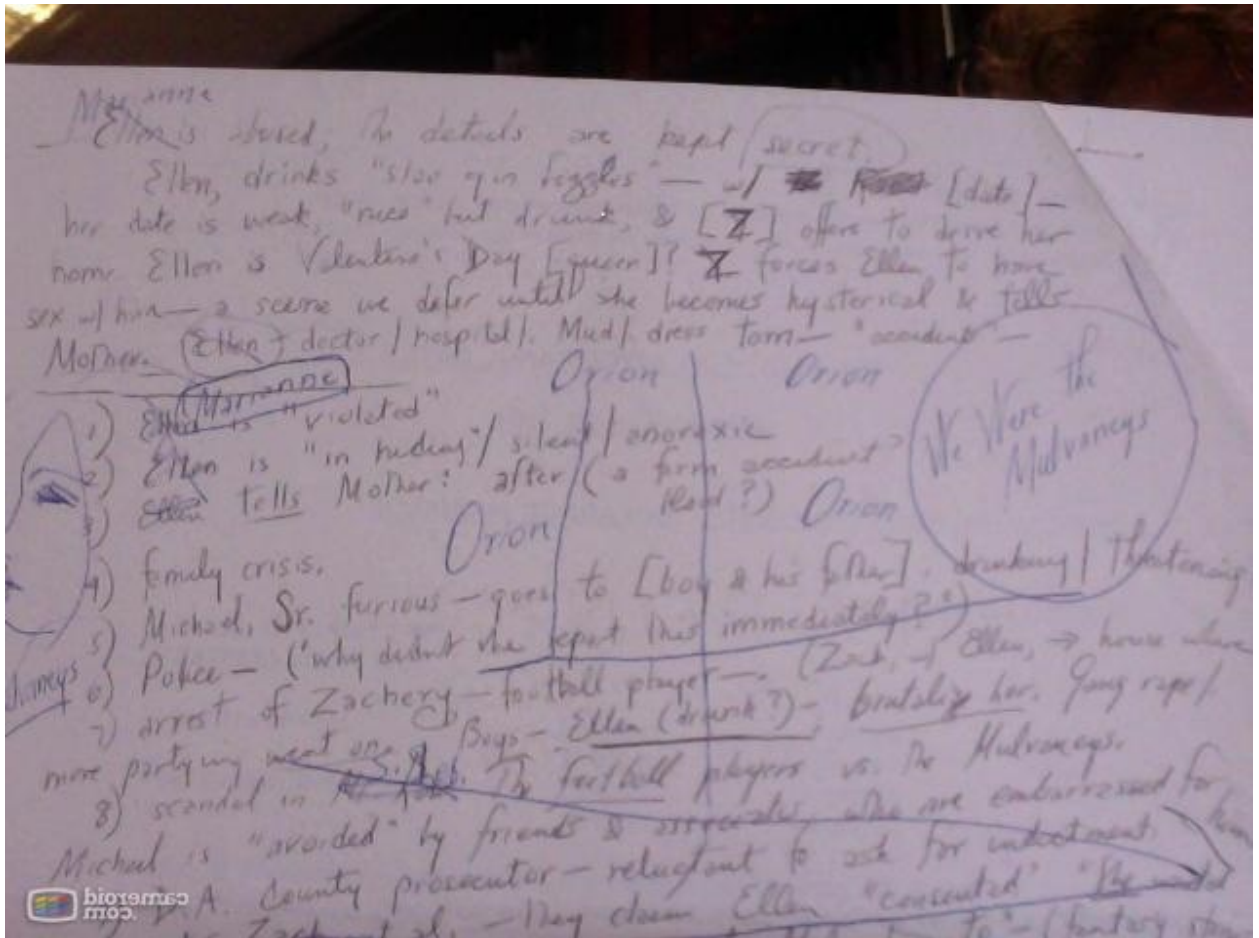 Marianne
Ellen is abused, the details are kept secret.
Ellen, drinks "sloe gin fizzles" — w/ [date] —
her date is weak, "nice" but drunk, & [Z] offers to drive her
home. Ellen is Valentine's Day [queen]? Z forces Ellen to have
sex w/ him — a scene we defer until she becomes hysterical & tells
Mother. (Ellen → doctor / hospital). Mud / dress torn — "accident" —
Orion Orion
We Were the
Mulvaneys
Marianne
1) Ellen is "violated"
2) Ellen is "in hiding" / silent / anorexic
3) Ellen tells Mother: after (a farm accident?
Orion Orion
4) family crisis.
5) Michael, Sr. furious — goes to [boy & his father]. drinking / threatening
6) Police — ("why didn't she report this immediately?")
7) arrest of Zachery — football player —. (Zach, → Ellen, → house where
more partying went on. Boys — Ellen (drunk?) — brutalize her. Gang rape /.
8) scandal in The football players vs. the Mulvaneys.
Michael is "avoided" by friends & associates, who are embarrassed for him
D.A. County prosecutor — reluctant to ask for indictment
Zach et al. — They claim Ellen "consented"
cameroid
.com